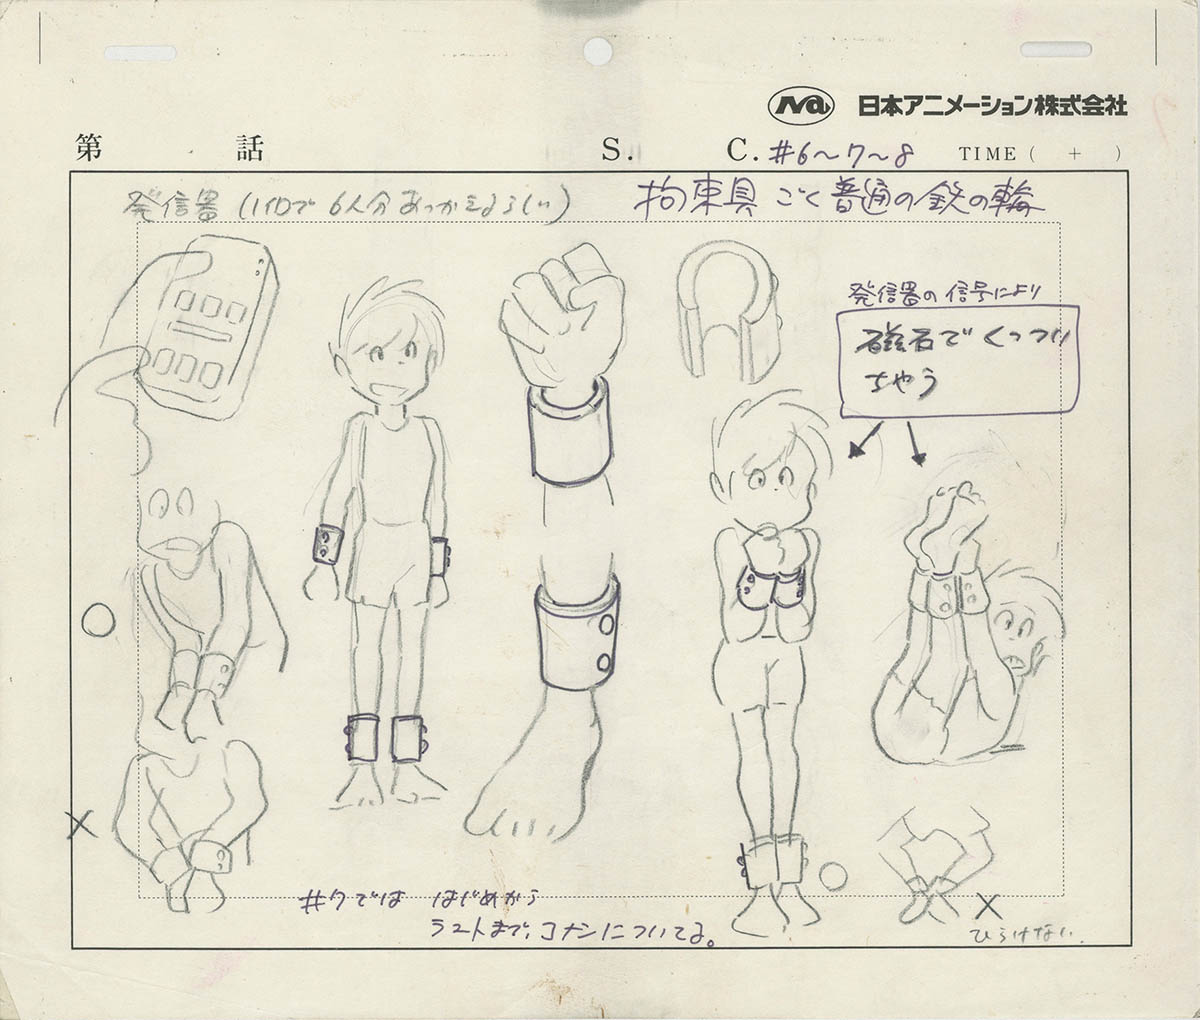 Na 日本アニメーション株式会社
第 話 S. C. #6〜7〜8 TIME ( + )
発信器 (1個で6人分あつかえるらしい)
拘束具 ごく普通の鉄の輪
発信器の信号により
磁石でくっつい
ちゃう
#7では はじめから
ラストまで、コナンについてる。
ひらけない